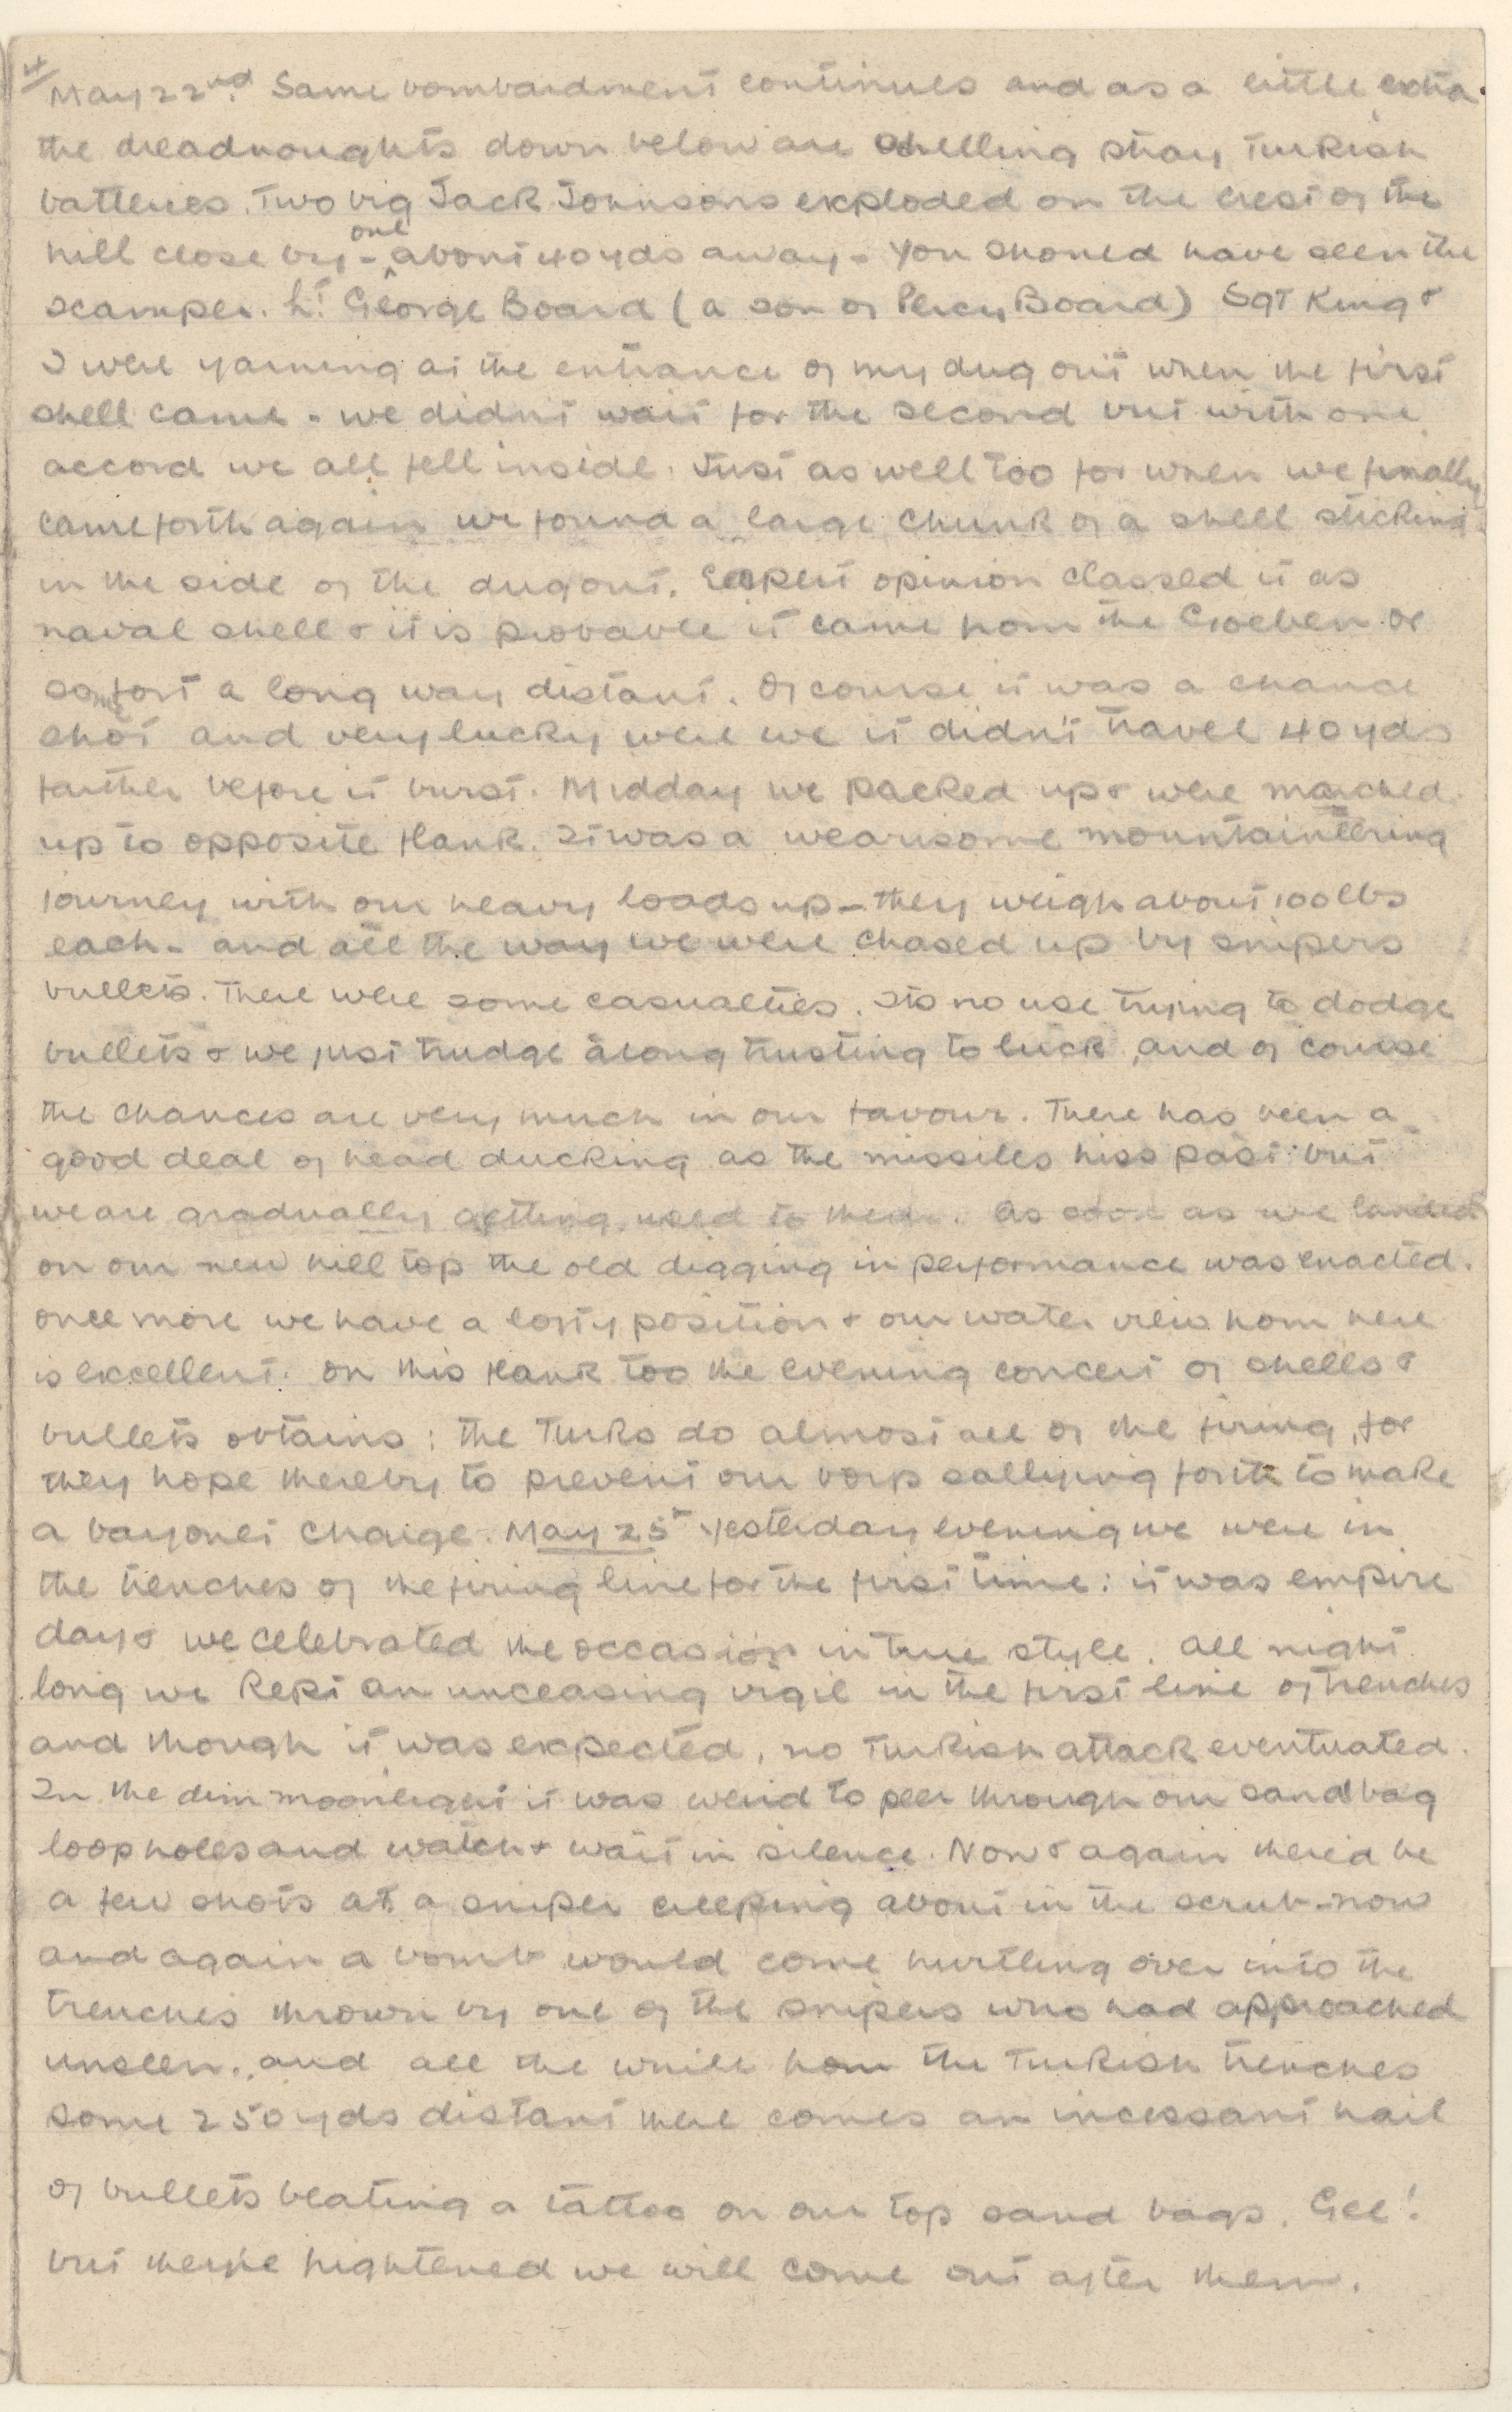 4/
May 22nd. Same bombardment continues and as a little extra.
the dreadnoughts down below are shelling stray Turkish
batteries. Two big Jack Johnsons exploded on the crest of the
hill close by - one about 40 yds away - You should have seen the
scamper. Lt. George Board (a son of Percy Board) Sgt King &
I were yarning at the entrance of my dug out when the first
shell came - we didn't wait for the second but with one
accord we all fell inside. Just as well too for when we finally
came forth again we found a large chunk of a shell sticking
in the side of the dugout. Expert opinion classed it as
naval shell & it is probable it came from the Goeben or
some fort a long way distant. Of course it was a chance
shot and very lucky were we it didn't travel 40 yds
farther before it burst. Midday we packed up & were marched
up to opposite flank. It was a wearisome mountaineering
journey with our heavy loads up - they weigh about 100 lbs
each - and all the way we were chased up by snipers
bullets. There were some casualties. Its no use trying to dodge
bullets & we just trudge along trusting to luck, and of course
the chances are very much in our favour. There has been a
good deal of head ducking as the missiles hiss past but
we are gradually getting used to them. As soon as we landed
on our new hill top the old digging in performance was enacted.
once more we have a lofty position & our water view from here
is excellent. On this flank too the evening concert of shells &
bullets obtains: the Turks do almost all of the firing, for
they hope thereby to prevent our boys sallying forth to make
a bayonet charge. May 25th Yesterday evening we were in
the trenches of the firing line for the first time: it was empire
day & we celebrated the occasion in true style. All night
long we kept an unceasing vigil in the first line of trenches
and though it was expected, no Turkish attack eventuated.
In the dim moonlight it was weird to peer through our sandbag
loopholes and watch & wait in silence. Now & again there'd be
a few shots at a sniper creeping about in the scrub - now
and again a bomb would come hurtling over into the
trenches thrown by one of the snipers who had approached
unseen., and all the while from the Turkish trenches
some 250 yds distant there comes an incessant hail
of bullets beating a tattoo on our top sand bags. Gee!
but they're frightened we will come out after them.